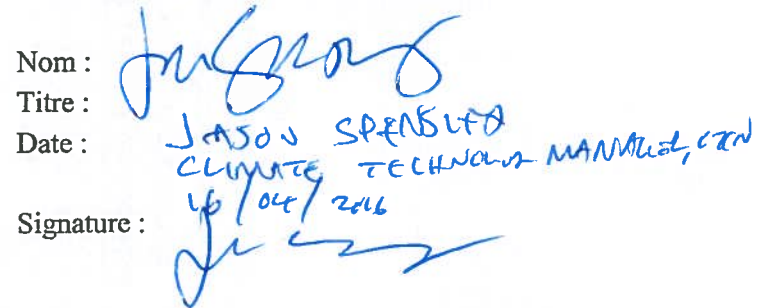 Nom :
Titre :
Date :
JASON SPENSLEY
CLIMATE TECHNOLOGY MANAGER, CTCN
/ 04 / 2016
Signature :